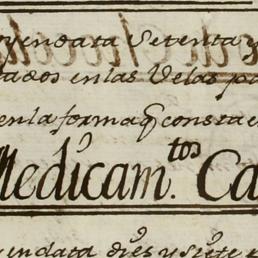 yendata Setenta y
tados en las Velas pa
en la forma q consta e
Medicam.tos Ca
yendata dies y siete